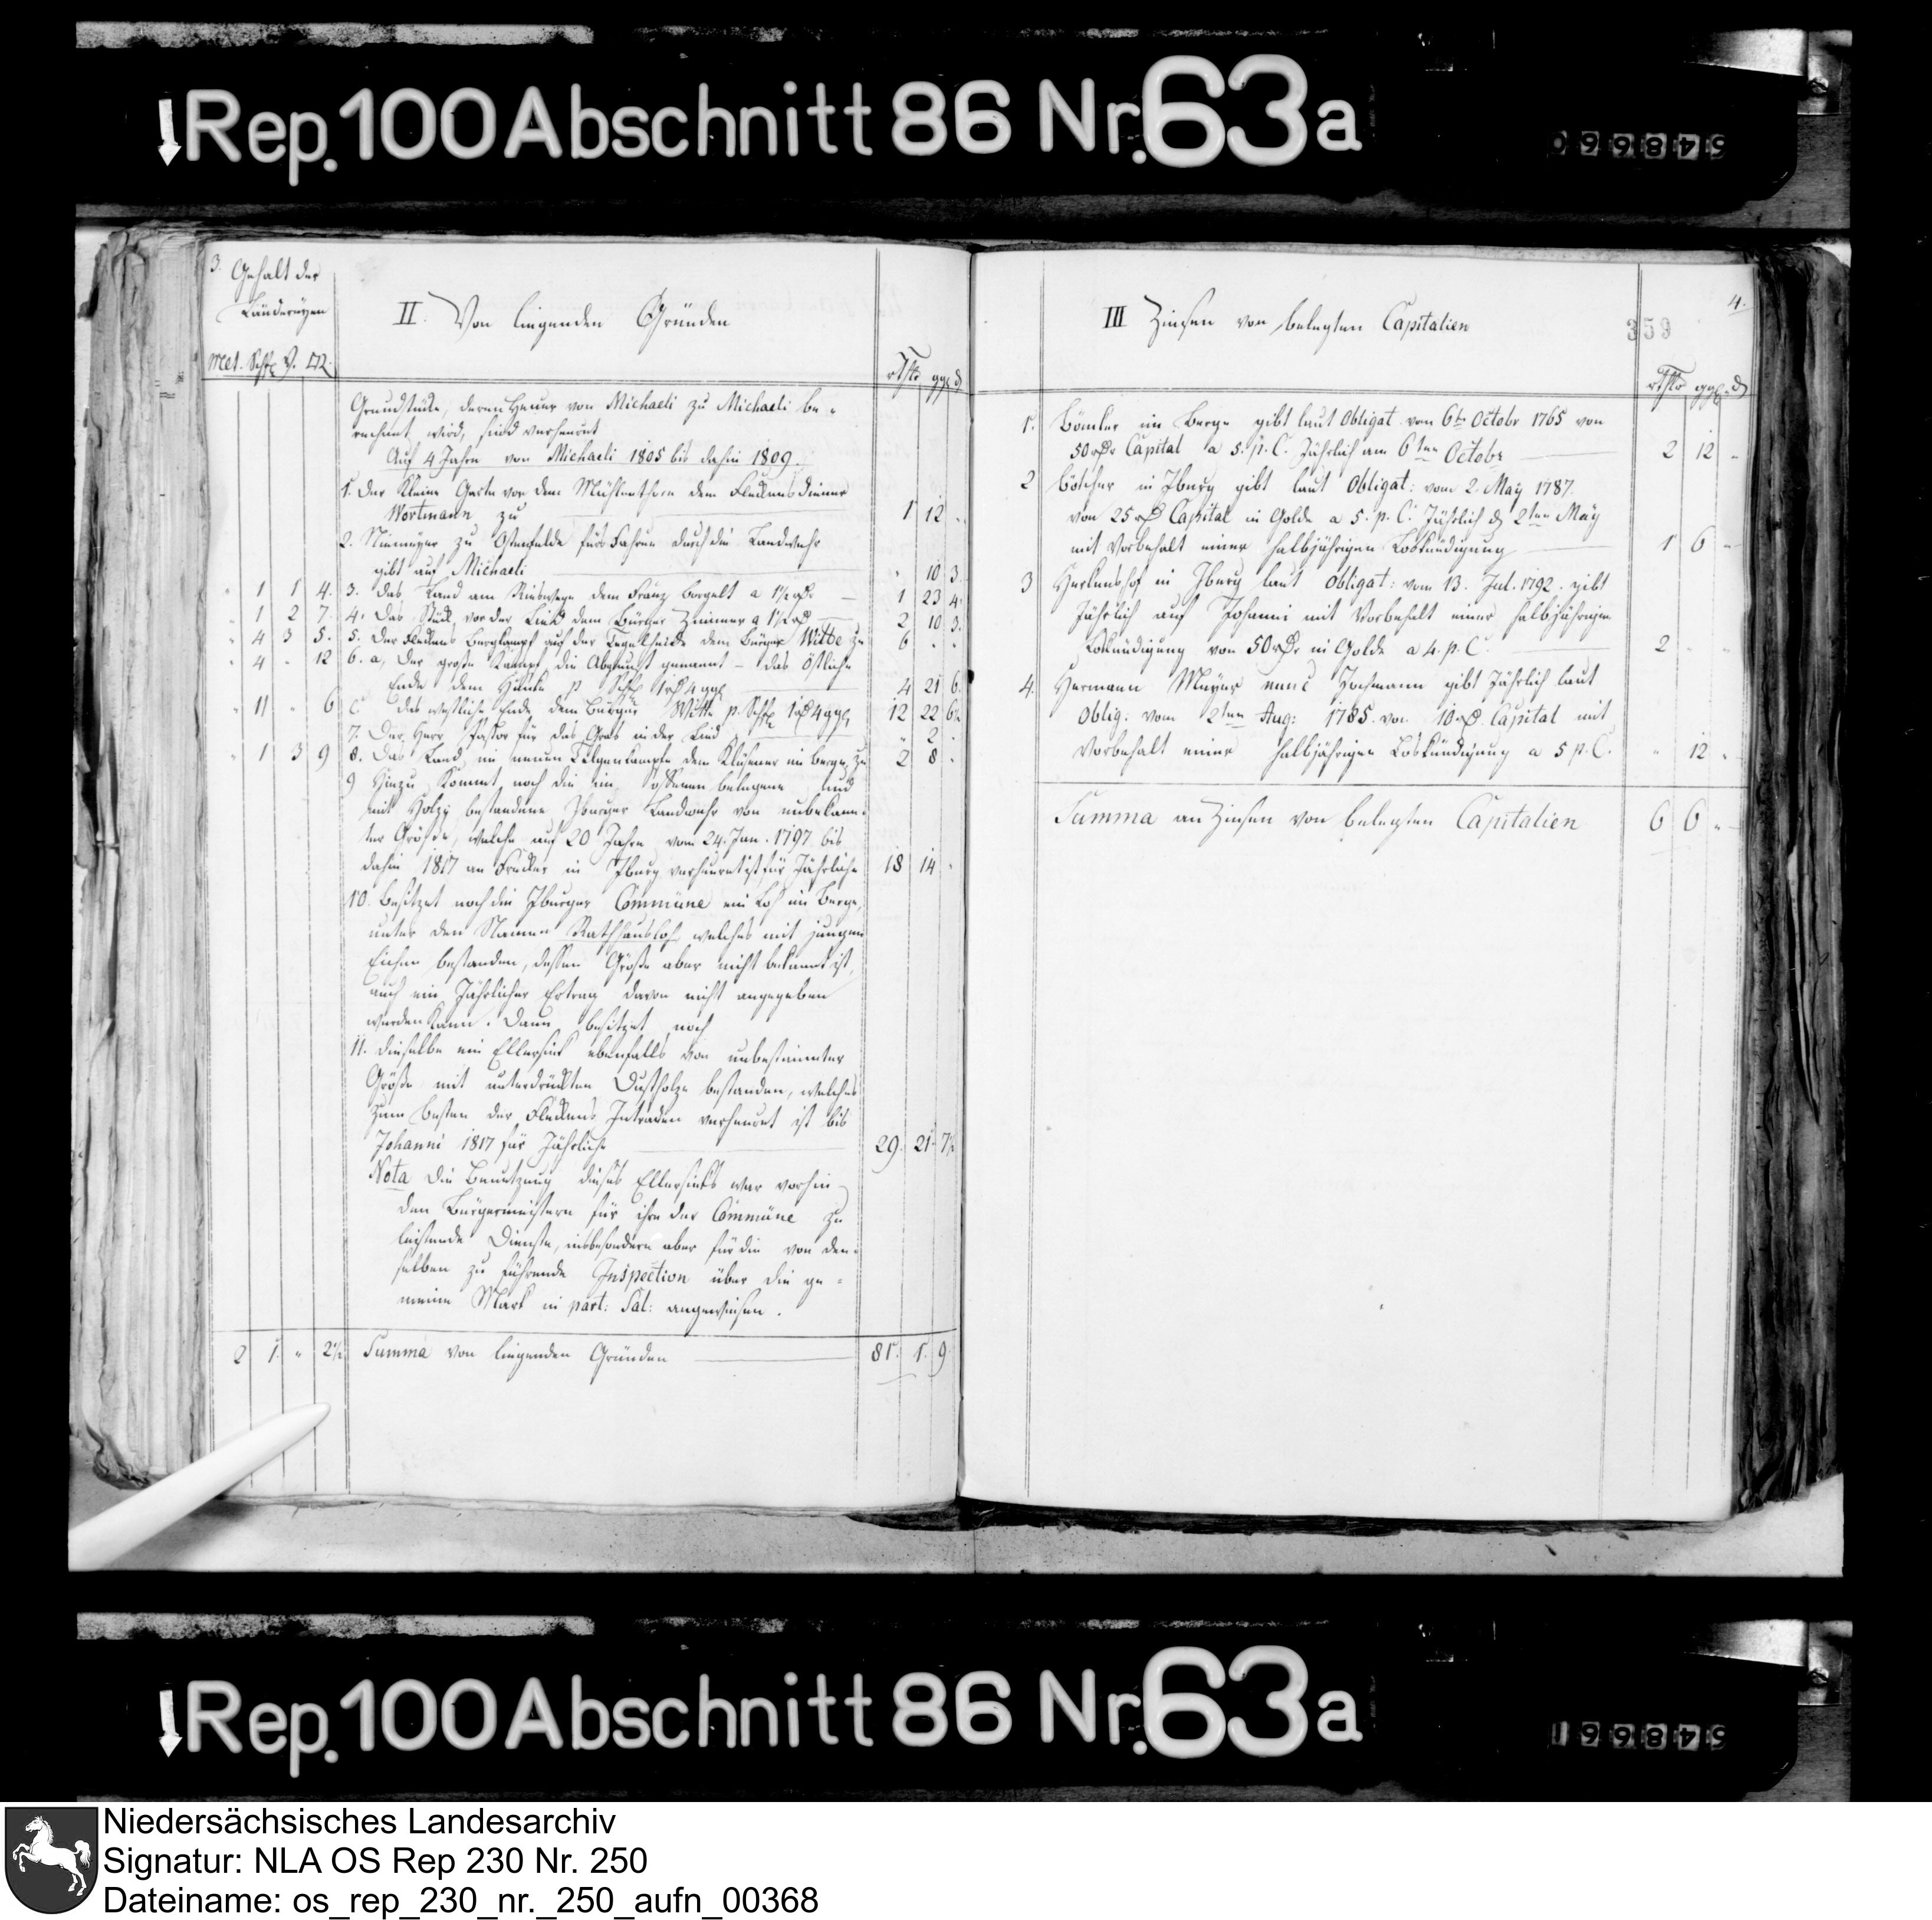 Rep. 100 Abschnitt 86 Nr. 63a
548660
3. Gehalt der
Ländereyen
Mlt. Schfl V. □R.
II. Von liegenden Gründen
rthlr ggl d
Grundstücke, deren Heuer von Michaeli zu Michaeli be-
rechnet wird, sind verheuert
Auf 4 Jahre von Michaeli 1805 bis dahin 1809.
1. Der kleine Garte vor dem Mühlenthore dem Fleckensdiener
Wortmann zu 1 12 "
2. Niemeyer zu Ostenfelde fürs Fahren durch die Landwehr
gibt auf Michaeli " 10 3.
" 1 1 4. 3. Das Land am dem Franz Borgelt a 1½ rthlr 1 23 4.
" 1 2 7. 4. Das Stück vor der dem Bürger Zimmer a 1½ rthl 2 10 3.
" 4 3 5. 5. Der Fleckens Bergkampf auf der Tegelheide dem Bürger Witte zu 6 " "
" 4 " 12 6. a, Der große Kampf, die Abgunst genannt - das östliche
Ende dem p Schfl 1 rthl 4 ggl 4 21 6.
" 11 " 6 C das westliche Ende dem Bürger Witte p. Schfl 1 rthl 4 ggl 12 22 6½
7. Der Herr Pastor für das Gras in der " 2 "
" 1 3 9 8. Das Land im neuen Telgenkampfe dem Klüsener im Berge zu 2 8 "
9 Hinzu kommt noch die im belegene und
mit Holze bestandene Iburger Landwehr von unbekann-
ter Größe, welche auf 20 Jahre vom 24. Jan. 1797 bis
dahin 1817 an in Iburg verheuert ist für Jährliche 18 14 "
10. Besitzet noch die Iburger Commüne ein Loh im Berge,
unter den Namen Rathhausloh welches mit jungen
Eichen bestanden, dessen Größe aber nicht bekannt ist,
auch ein Jährlicher Ertrag davon nicht angegeben
werden kann. Dann besitzet noch
11. dieselbe ein Ellersiek ebenfalls von unbestimmter
Größe mit unterdrückten Dustholze bestanden, welches
zum besten der Fleckens Intraden verheuert ist bis
Johanni 1817 für Jährliche 29. 21 7½
Nota Die Benutzung dieses Ellersieks war vorhin
den Bürgermeistern für ihre der Commüne zu
leistende Dienste, insbesondere aber für die von den-
selben zu führende Inspection über die ge-
meine Mark in part: Sal: angewiesen.
2 1. " 2½ Summa von liegenden Gründen 81. 1. 9
4.
359
III Zinsen von belegten Capitalien
rthlr ggl d
1. Bömler im Berge gibt laut Obligat vom 6ten Octobr 1765 von
50 rthlr Capital a 5. p. C. Jährlich am 6ten Octobr 2 12 "
2 Bötcher in Iburg gibt laut Obligat: vom 2. May 1787.
von 25 rthl Capital in Golde a 5. p. C. Jährlich d 2ten May
mit Vorbehalt einer halbjährigen Loskündigung 1 6 "
3 in Iburg laut Obligat: vom 13. Jul. 1792. gibt
Jährlich auf Johanni mit Vorbehalt einer halbjährigen
Loskündigung von 50 rthlr in Golde a 4. p. C. 2 " "
4. Hermann Meyer nunc gibt Jährlich laut
Oblig. vom 2ten Aug: 1785. von 10 rthl. Capital mit
Vorbehalt einer halbjährigen Loskündigung a 5 p. C. " 12 "
Summa an Zinsen von belegten Capitalien 6 6 "
Rep. 100 Abschnitt 86 Nr. 63a
548661
Niedersächsisches Landesarchiv
Signatur: NLA OS Rep 230 Nr. 250
Dateiname: os_rep_230_nr._250_aufn_00368